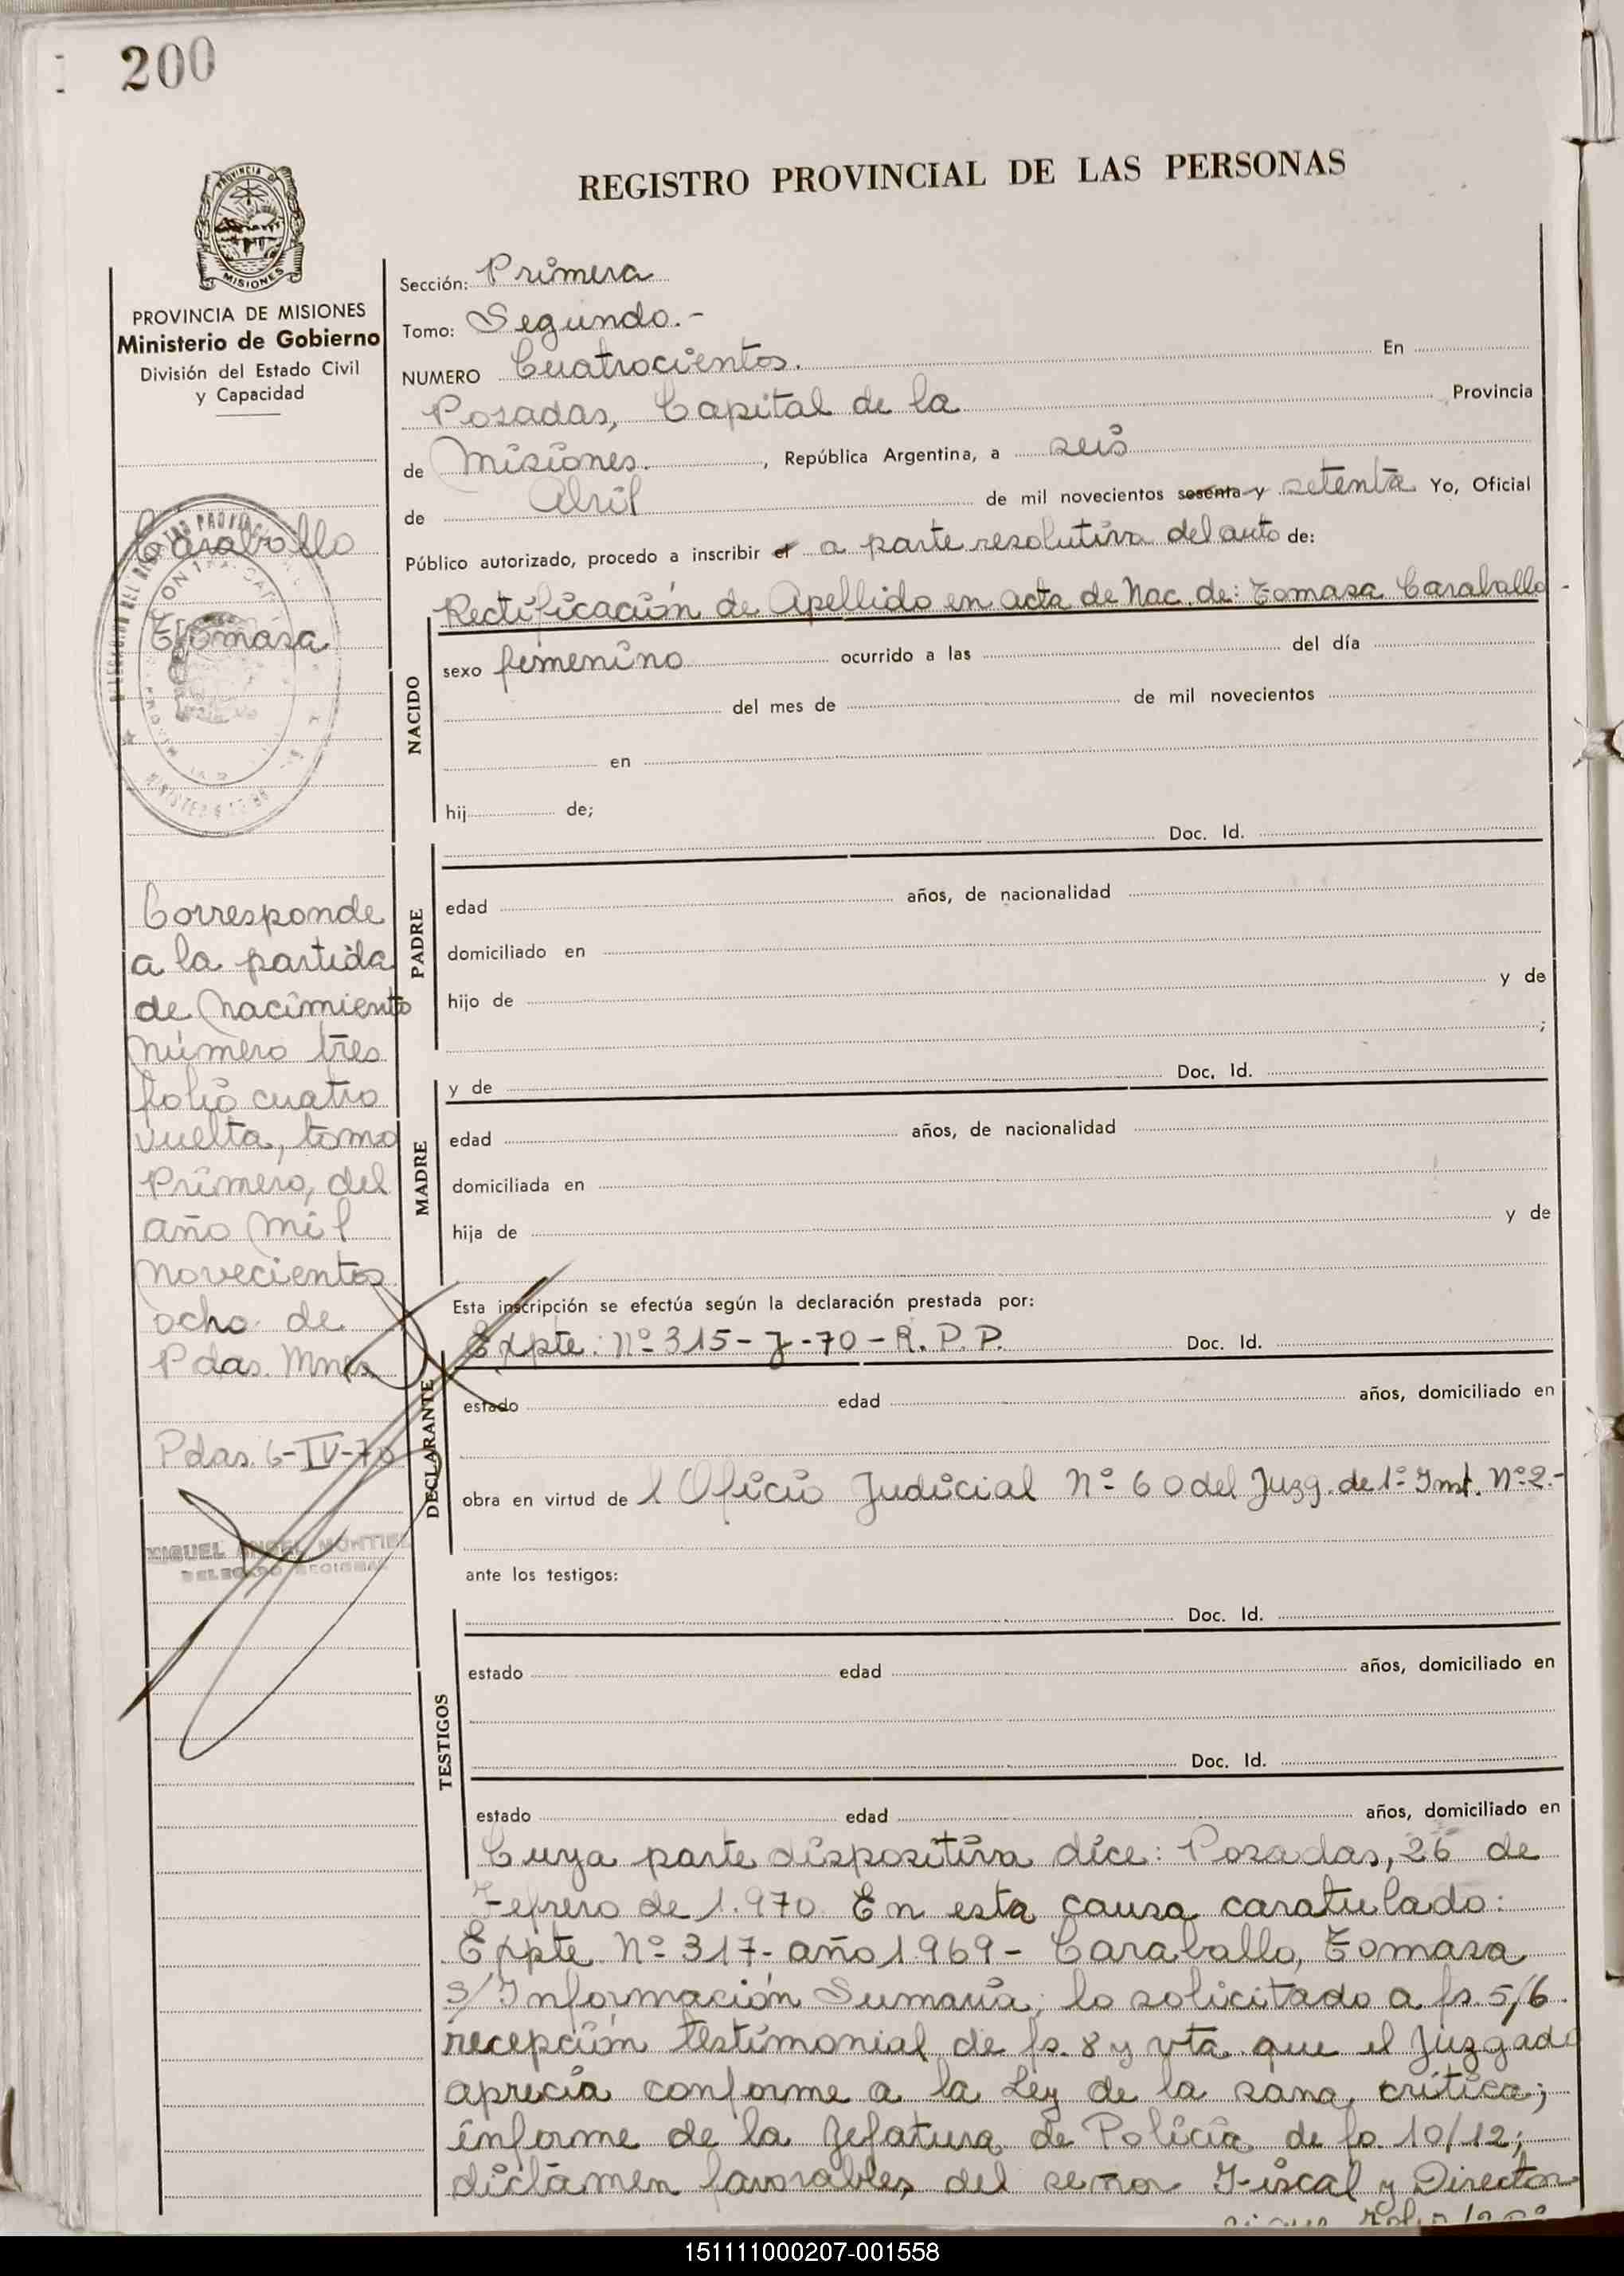 200
REGISTRO PROVINCIAL DE LAS PERSONAS
PROVINCIA DE
MISIONES
PROVINCIA DE MISIONES
Ministerio de Gobierno
División del Estado Civil
y Capacidad
Caraballo
Tomasa
Corresponde
a la partida
de Nacimiento
Número tres
folio cuatro
vuelta, tomo
Primero, del
año mil
novecientos
ocho de
Pdas. Mnes.
Pdas. 6-IV-70
MIGUEL ANGEL MONTIEL
DELEGADO REGIONAL
Sección: Primera
Tomo: Segundo.-
NUMERO Cuatrocientos. En
Posadas, Capital de la Provincia
de Misiones. , República Argentina, a seis
de Abril de mil novecientos sesenta y setenta Yo, Oficial
Público autorizado, procedo a inscribir el a parte resolutiva del auto de:
Rectificación de Apellido en acta de Nac. de: Tomasa Caraballo -
NACIDO
sexo femenino ocurrido a las del día
del mes de de mil novecientos
en
hij de;
Doc. Id.
PADRE
edad años, de nacionalidad
domiciliado en
hijo de y de
;
y de Doc. Id.
MADRE
edad años, de nacionalidad
domiciliada en
hija de y de
Esta inscripción se efectúa según la declaración prestada por:
Expte. Nº 315-J-70-R.P.P. Doc. Id.
DECLARANTE
estado edad años, domiciliado en
obra en virtud de l Oficio Judicial Nº 60 del Juzg. de 1º Inst. Nº 2.-
ante los testigos:
Doc. Id.
TESTIGOS
estado edad años, domiciliado en
Doc. Id.
estado edad años, domiciliado en
Cuya parte dispositiva dice: Posadas, 26 de
Febrero de 1.970. En esta causa caratulado:
Expte. Nº 317- año 1969- Caraballo, Tomasa
s/Información Sumaria; lo solicitado a fs. 5/6
recepción testimonial de fs. 8 y vta. que el Juzgado
aprecia conforme a la Ley de la sana crítica;
informe de la Jefatura de Policía de fs. 10/12;
dictámen favorables del señor Fiscal y Director
151111000207-001558